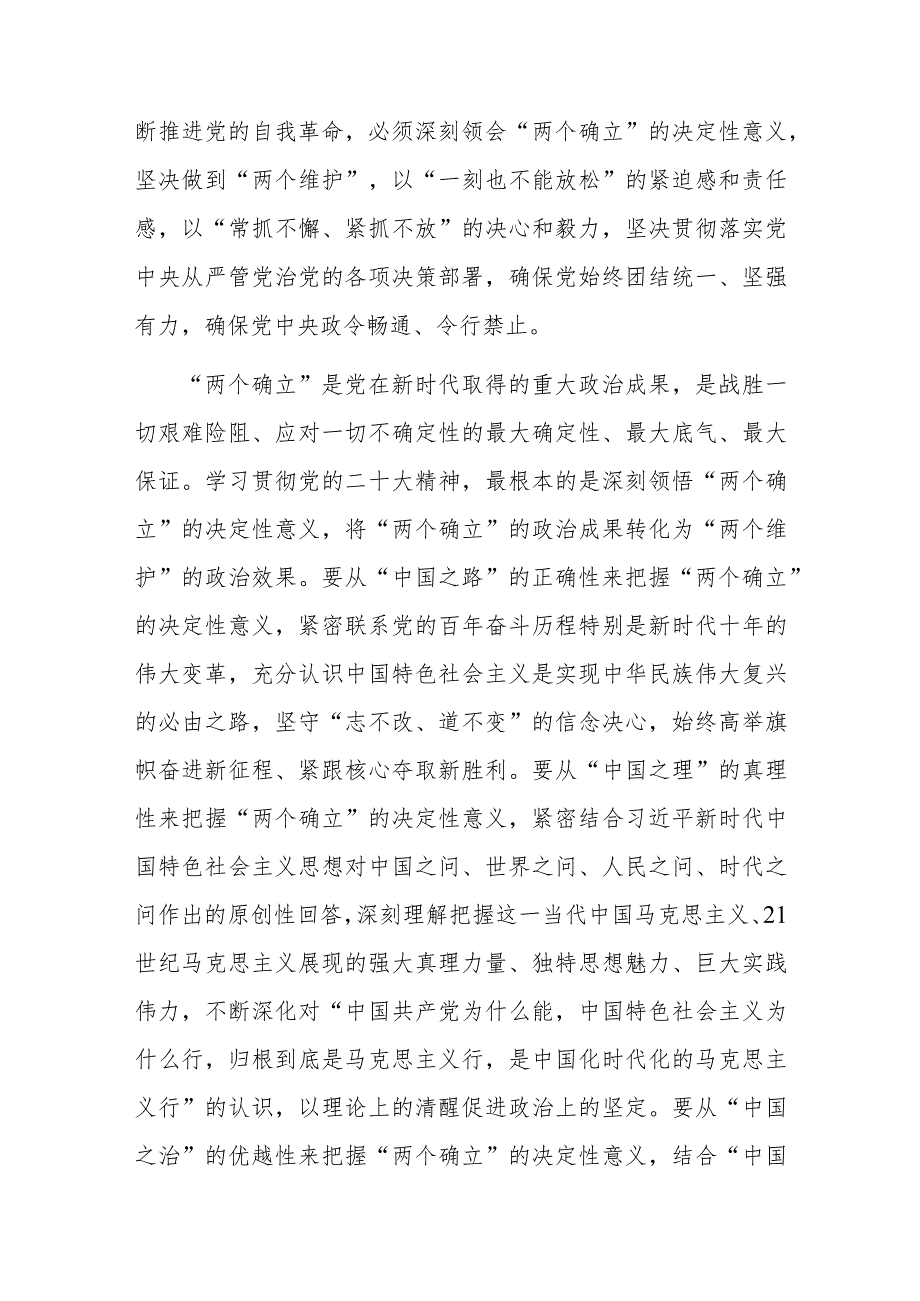 断推进党的自我革命，必须深刻领会“两个确立”的决定性意义，
坚决做到“两个维护”，以“一刻也不能放松”的紧迫感和责任
感，以“常抓不懈、紧抓不放”的决心和毅力，坚决贯彻落实党
中央从严管党治党的各项决策部署，确保党始终团结统一、坚强
有力，确保党中央政令畅通、令行禁止。
“两个确立”是党在新时代取得的重大政治成果，是战胜一
切艰难险阻、应对一切不确定性的最大确定性、最大底气、最大
保证。学习贯彻党的二十大精神，最根本的是深刻领悟“两个确
立”的决定性意义，将“两个确立”的政治成果转化为“两个维
护”的政治效果。要从“中国之路”的正确性来把握“两个确立”
的决定性意义，紧密联系党的百年奋斗历程特别是新时代十年的
伟大变革，充分认识中国特色社会主义是实现中华民族伟大复兴
的必由之路，坚守“志不改、道不变”的信念决心，始终高举旗
帜奋进新征程、紧跟核心夺取新胜利。要从“中国之理”的真理
性来把握“两个确立”的决定性意义，紧密结合习近平新时代中
国特色社会主义思想对中国之问、世界之问、人民之问、时代之
问作出的原创性回答，深刻理解把握这一当代中国马克思主义、21
世纪马克思主义展现的强大真理力量、独特思想魅力、巨大实践
伟力，不断深化对“中国共产党为什么能，中国特色社会主义为
什么行，归根到底是马克思主义行，是中国化时代化的马克思主
义行”的认识，以理论上的清醒促进政治上的坚定。要从“中国
之治”的优越性来把握“两个确立”的决定性意义，结合“中国